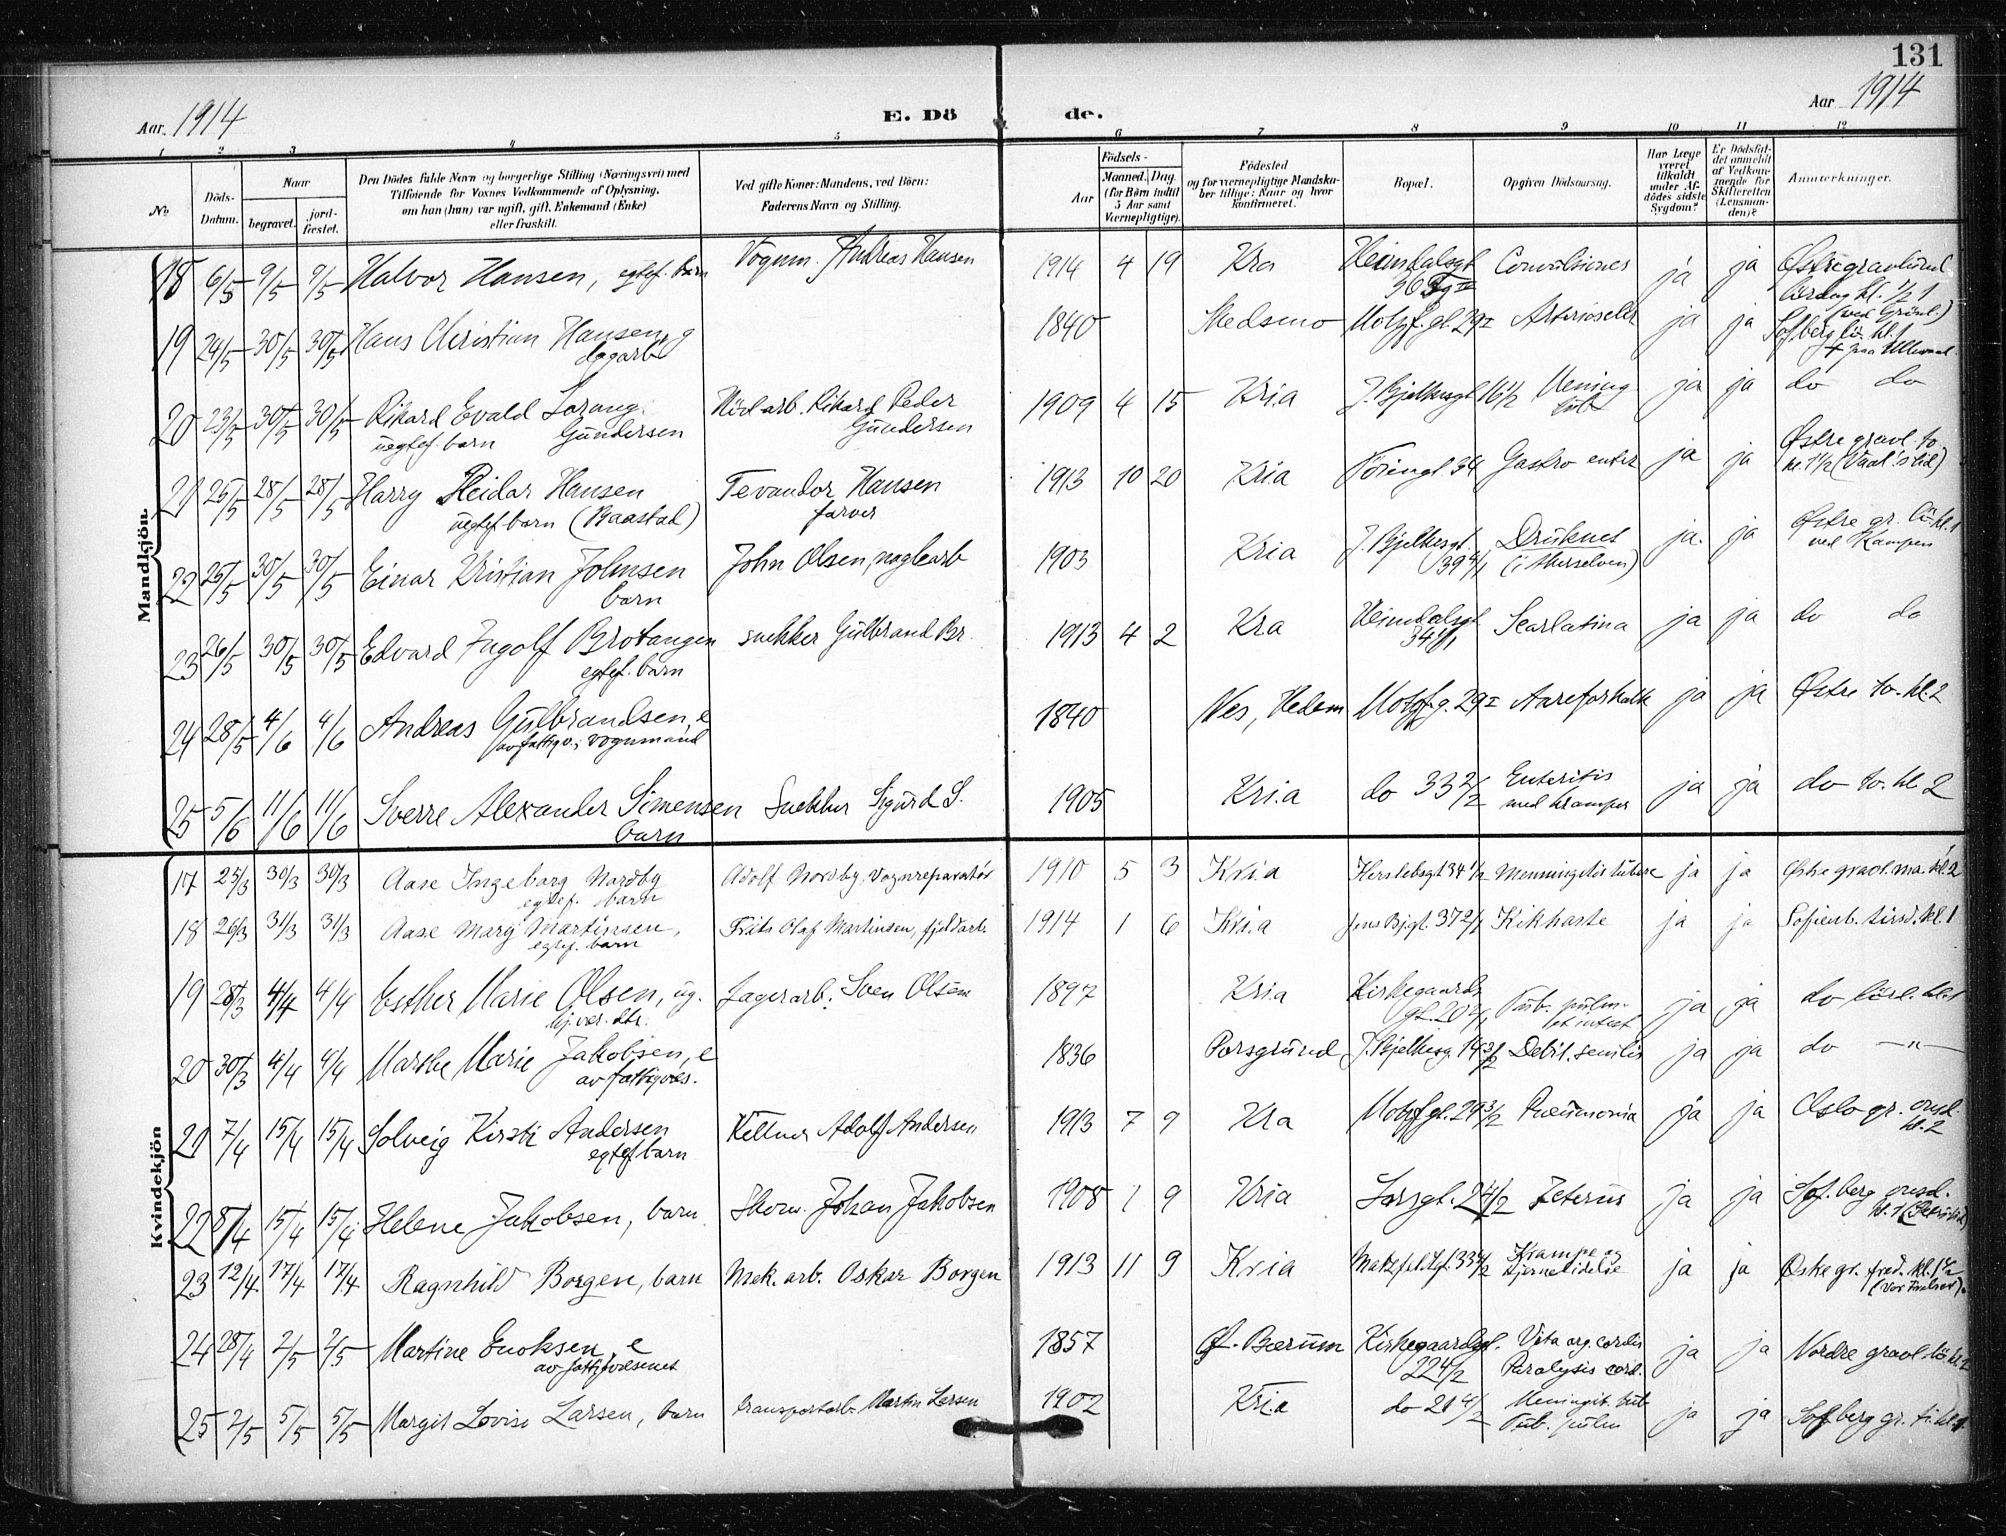 131
Aar 1914
E. Döde.
Aar 1914
1 2 3 4 5 6 7 8 9 10 11 12
No
Döds-Datum.
Naar
begravet.
jord-fæstet.
Den Dödes fulde Navn og borgerlige Stilling (Næringsvei) med
Tilföiende for Voxnes Vedkommende af Oplysning,
om han (hun) var ugift, gift, Enkemand (Enke)
eller fraskilt.
Ved gifte Koner: Mandens, ved Börn:
Faderens Navn og Stilling.
Födsels-
Aar
Maaned. Dag.
(for Börn indtil
5 Aar samt
Værnepligtige).
Födested
og for værnepligtige Mandskaber tillige: Naar og hvor
konfirmeret.
Bopæl.
Opgiven Dödsaarsag.
Har Læge
været
tilkaldt
under Afdödes sidste
Sygdom?
Er Dödsfaldet anmeldt
af Vedkommende for
Skifteretten
(Lensmanden)?
Anmærkninger.
Mandkjön.
18 6/5 9/5 9/5 Halvor Hansen, egtef. barn Vognm. Andreas Hansen 1914 4 19 Kra Heimdalsgt 36 Convulsiones ja ja Østre gravlund lördag kl. 1/2 1 (ved Grönl.)
19 24/5 30/5 30/5 Hans Christian Hansen, g dagarb 1840 Skedsmo Motzf. gt. 29 I Arterioscler ja ja Sofberg lö. kl. 1
20 23/5 30/5 30/5 Rikard Evald Gundersen uegtef. barn Rikard Peder Gundersen 1909 4 15 Kria J. Bjelkesgt 16 1/2 Mening tub ja ja do do
21 25/5 28/5 28/5 Harry Reidar Hansen uegtef barn (Baastad) Tevandor Hansen farver 1913 10 20 Kria 34 Gastro enter ja ja Østre gravl. to kl. 1 1/2
22 25/5 30/5 30/5 Einar Kristian Johnsen barn John Olsen, naglearb 1903 Kria J. Bjelkesgt. 39 4/1 Druknet (i Akerselven) ja. ja Østre gr. lö kl. 1 ved Kampen
23 26/5 30/5 30/5 Edvard Ingolf Brotangen egtef. barn snekker Gulbrand Br. 1913 4 2 Kra Heimdalsgt 34 1/1 Scarlatina ja ja do do
24 28/5 4/6 4/6 Andreas Gulbrandsen, e av fattigv.; vognmand 1840 Nes, Hedem Motzf. g. 29 I Aareforkalk ja ja Østre to. kl. 2
25 5/6 11/6 11/6 Sverre Alexander Simensen barn Snekker Sigurd S. 1905 Kria do 33 2/2 Enteritis med kramper ja ja do to. kl 2
Kvindekjön
17 25/3 30/3 30/3 Aase Ingeborg Nordby egtef. barn Adolf Nordby, Vognreparatör 1910 5 3 Kria Herslebsgt 34 1/2 Menningitis tuberc ja ja Østre gravl. ma. kl. 2
18 26/3 31/3 31/3 Aase Marg Martinsen, egtef. barn Frits Olaf Martinsen, fjeldarb. 1914 1 6 Kria Jens Bj. gt. 37 2/1 Kikhoste ja ja Sofienb. tirsd. kl. 1
19 28/3 4/4 4/4 Esther Marie Olsen, ug. hj. vær. dtr. Lagerarb. Sven Olsen 1897 Kria Kirkegaards gt. 20 4/1 Tub. pulm. et intest ja ja do lörd. kl. 1
20 30/3 4/4 4/4 Marthe Marie Jakobsen, e av fattigvæs. 1836 Porsgrund J. Bjelkesg. 14 3/2 Debil. senilis ja ja do — " —
21 7/4 15/4 15/4 Solveig Kirsti Andersen egtef barn Kellner Adolf Andersen 1913 7 9 Kra Motzf gt. 29 3/2 Pneumonia ja ja Oslo gr. onsd. kl. 2
22 8/4 15/4 15/4 Helene Jakobsen, barn Skom. Johan Jakobsen 1908 1 9 Kria Larsgt. 2 4/2 Icterus ja ja Sof. berg onsd. kl. 1
23 12/4 17/4 17/4 Ragnhild Borgen, barn Mek. arb. Oskar Borgen 1913 11 9 Kria 33 4/2 Krampe og hjernelidelse ja ja Østre gr. fred. kl. 1 1/2
24 28/4 2/5 2/5 Martine Enoksen, e av fattigvæsenet 1857 Ø. Bærum Kirkegaardsgt. 22 4/2 Vita org. cordis Paralysis cord. ja ja Nordre gravl. lö kl. 2
25 2/5 5/5 5/5 Margit Lovise Larsen, barn transportarb. Martin Larsen 1902 Kria do 21 4/2 Meningit. tub. Tub. pulm ja ja Sofberg gr. ti. kl. 1